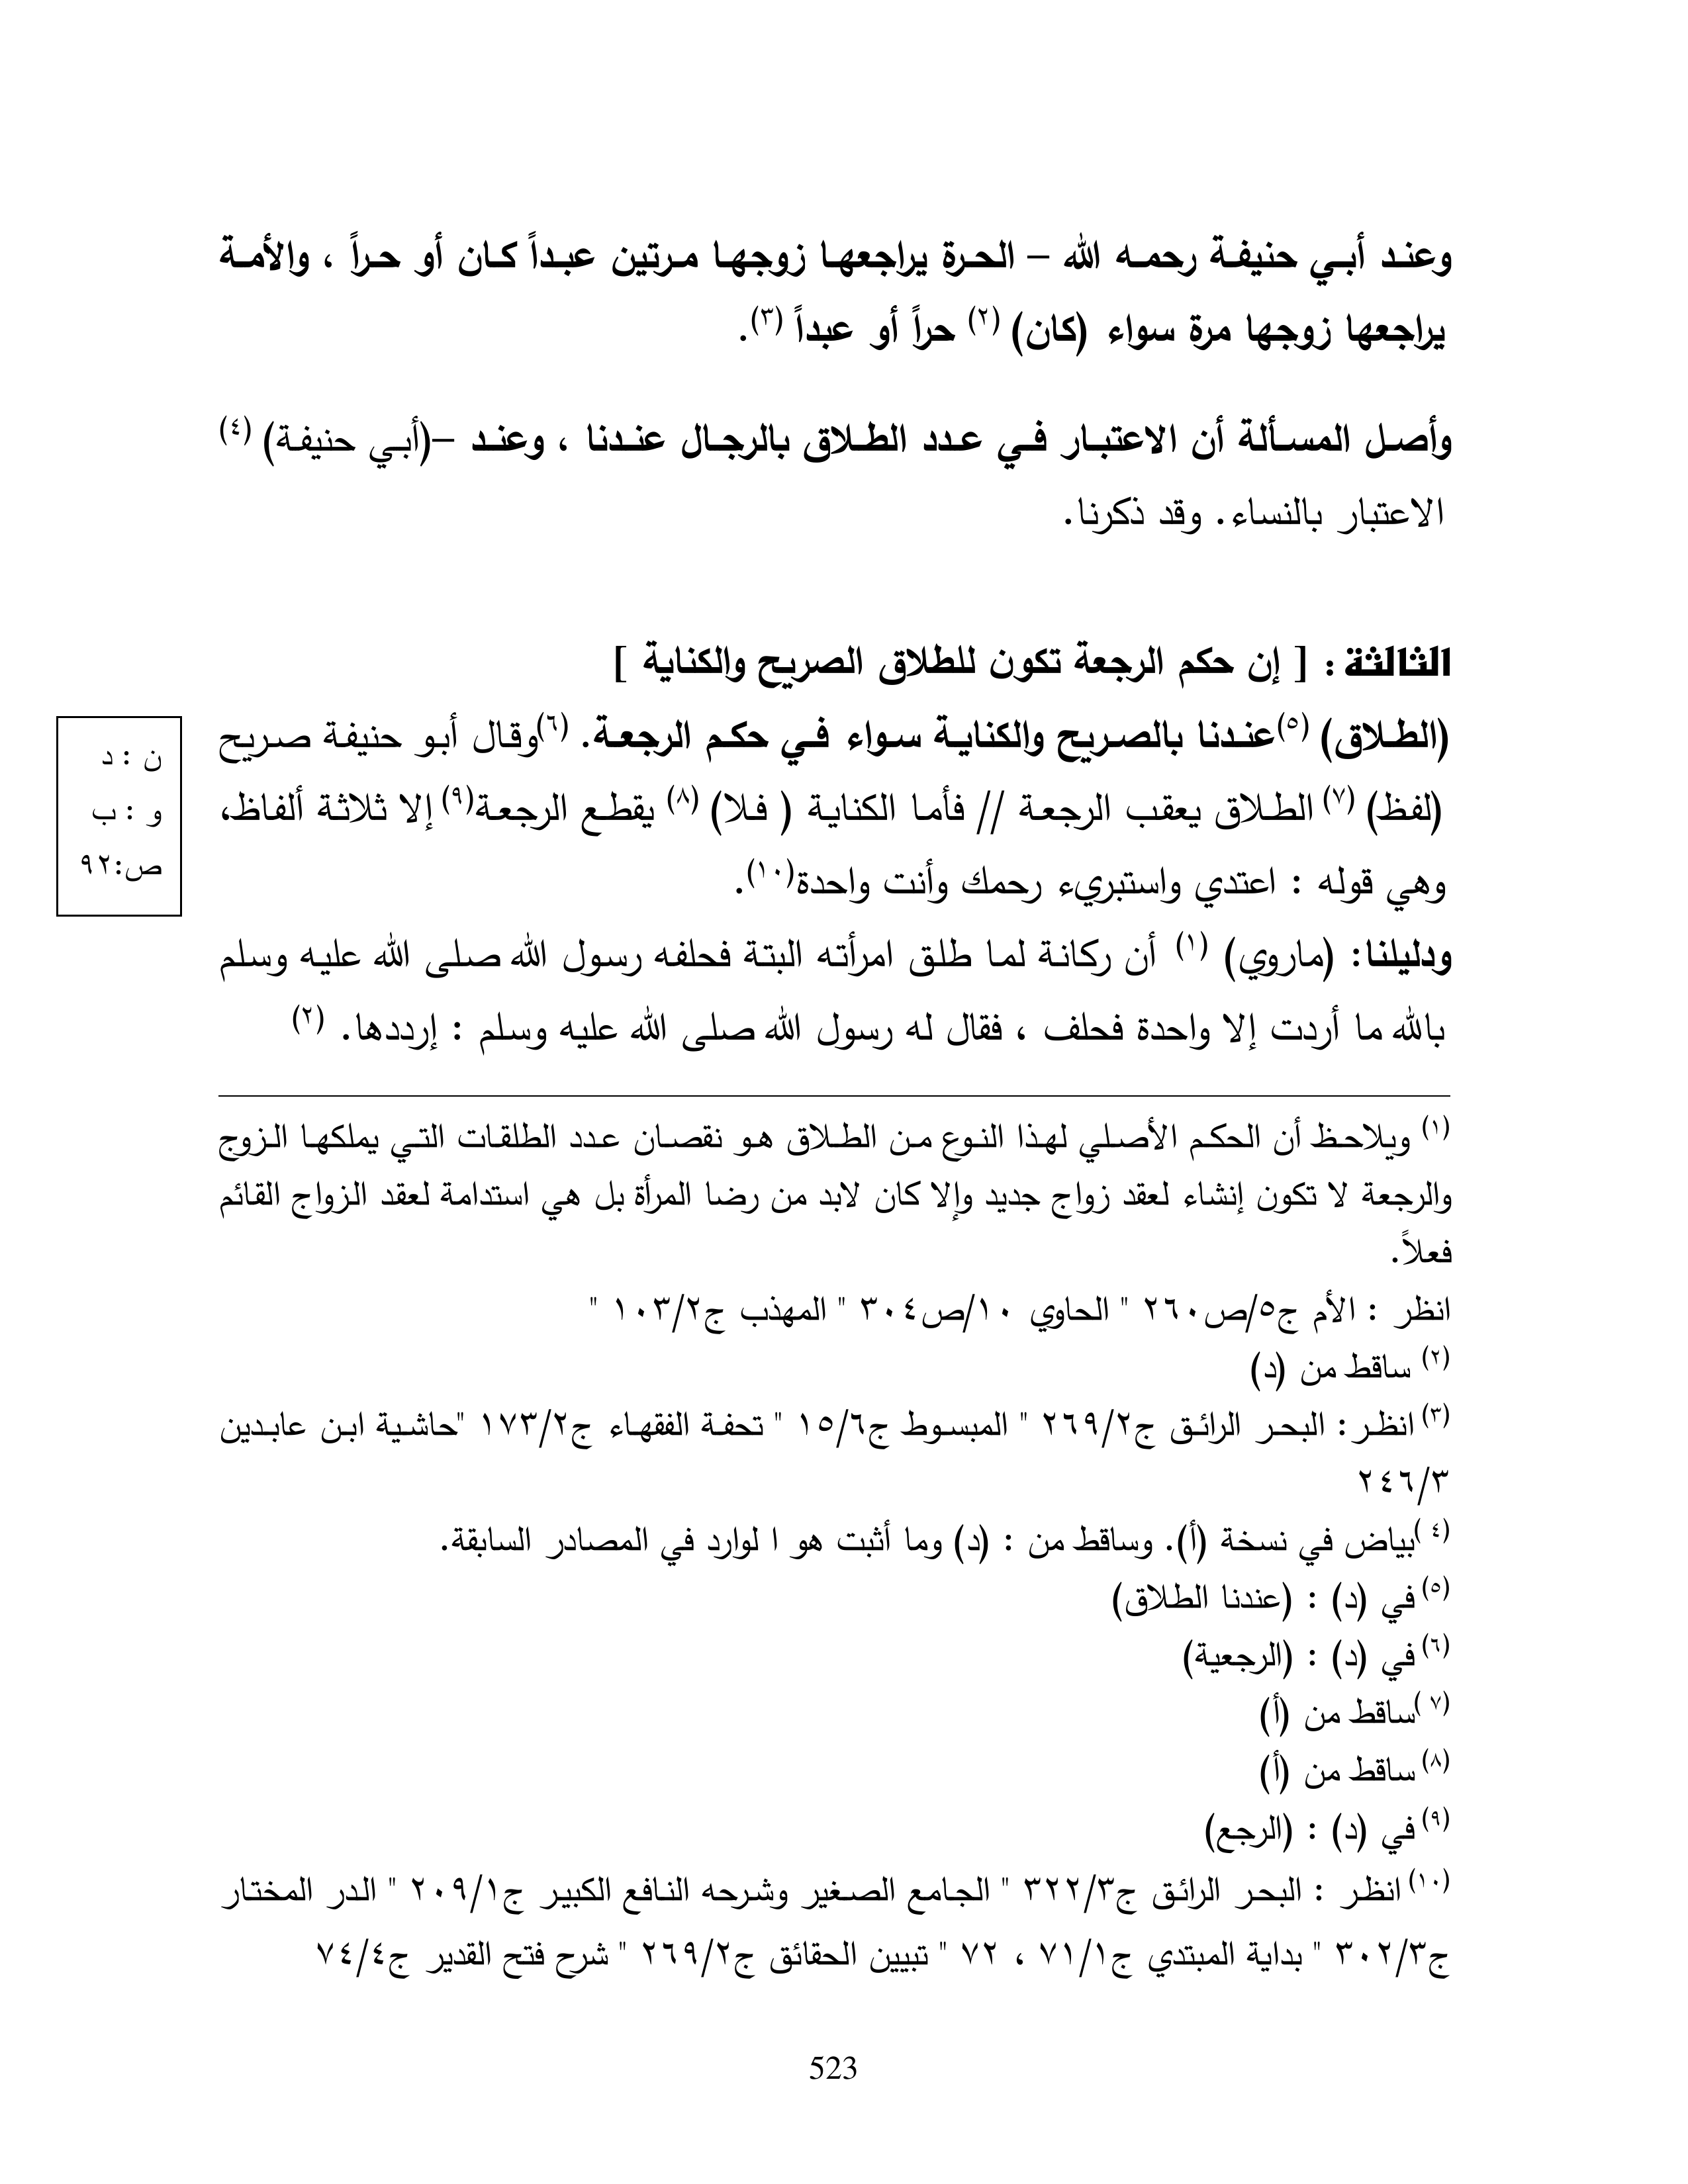 وعند أبي حنيفة رحمه الله – الحرة يراجعها زوجها مرتين عبداً كان أو حراً ، والأمة
يراجعها زوجها مرة سواء (كان) (٢) حراً أو عبداً (٣).
وأصل المسألة أن الاعتبار في عدد الطلاق بالرجال عندنا ، وعند –(أبي حنيفة) (٤)
الاعتبار بالنساء. وقد ذكرنا.
الثالثة : [ إن حكم الرجعة تكون للطلاق الصريح والكناية ]
(الطلاق) (٥)عندنا بالصريح والكناية سواء في حكم الرجعة. (٦)وقال أبو حنيفة صريح
(لفظ) (٧) الطلاق يعقب الرجعة // فأما الكناية ( فلا) (٨) يقطع الرجعة(٩) إلا ثلاثة ألفاظ،
وهي قوله : اعتدي واستبريء رحمك وأنت واحدة(١٠).
ن : د
و : ب
ص:٩٢
ودليلنا: (ماروي) (١) أن ركانة لما طلق امرأته البتة فحلفه رسول الله صلى الله عليه وسلم
بالله ما أردت إلا واحدة فحلف ، فقال له رسول الله صلى الله عليه وسلم : إرددها. (٢)
(١) ويلاحظ أن الحكم الأصلي لهذا النوع من الطلاق هو نقصان عدد الطلقات التي يملكها الزوج
والرجعة لا تكون إنشاء لعقد زواج جديد وإلا كان لابد من رضا المرأة بل هي استدامة لعقد الزواج القائم
فعلاً.
انظر : الأم ج٥/ص٢٦٠ " الحاوي ١٠/ص٣٠٤ " المهذب ج١٠٣/٢ "
(٢) ساقط من (د)
(٣) انظر: البحر الرائق ج٢٦٩/٢ " المبسوط ج١٥/٦ " تحفة الفقهاء ج١٧٣/٢ "حاشية ابن عابدين
٢٤٦/٣
(٤ )بياض في نسخة (أ). وساقط من : (د) وما أثبت هو ا لوارد في المصادر السابقة.
(٥) في (د) : (عندنا الطلاق)
(٦) في (د) : (الرجعية)
(٧ )ساقط من (أ)
(٨) ساقط من (أ)
(٩) في (د) : (الرجع)
(١٠) انظر : البحر الرائق ج٣٢٢/٣ " الجامع الصغير وشرحه النافع الكبير ج٢٠٩/١ " الدر المختار
ج٣٠٢/٣ " بداية المبتدي ج٧١/١ ، ٧٢ " تبيين الحقائق ج٢٦٩/٢ " شرح فتح القدير ج٧٤/٤
523